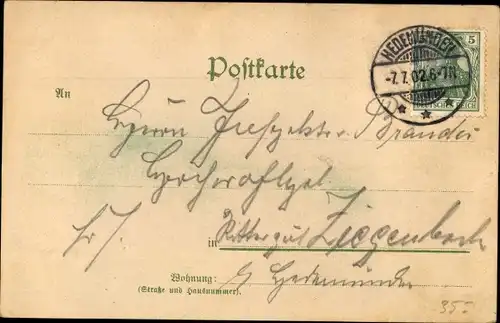 HEDEMÜNDEN
5
-7.7.02.6-7N
DEUTSCHES REICH
Postkarte
An
Herrn Inspektor Brandes
in Rittergut Ziegenberg
Wohnung:
(Straße und Hausnummer).
b/ Hedemünden
35.-